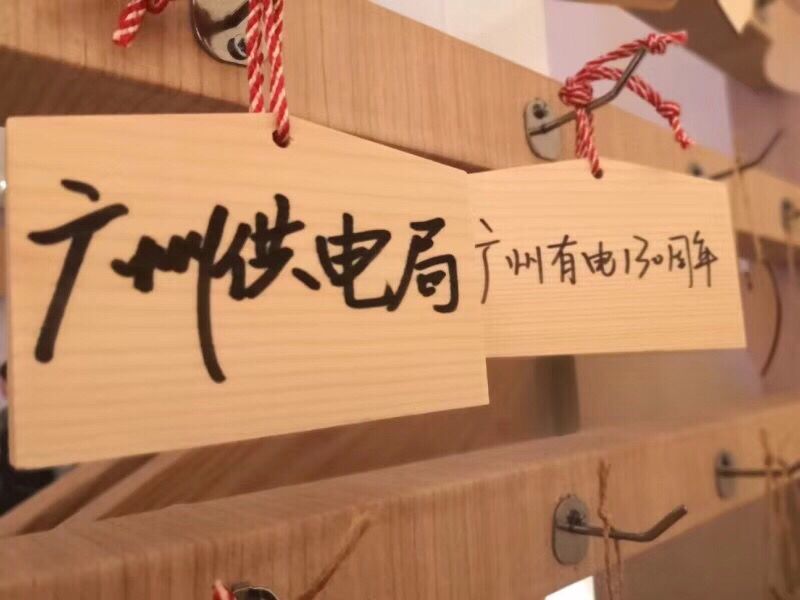 广州供电局
广州有电130周年